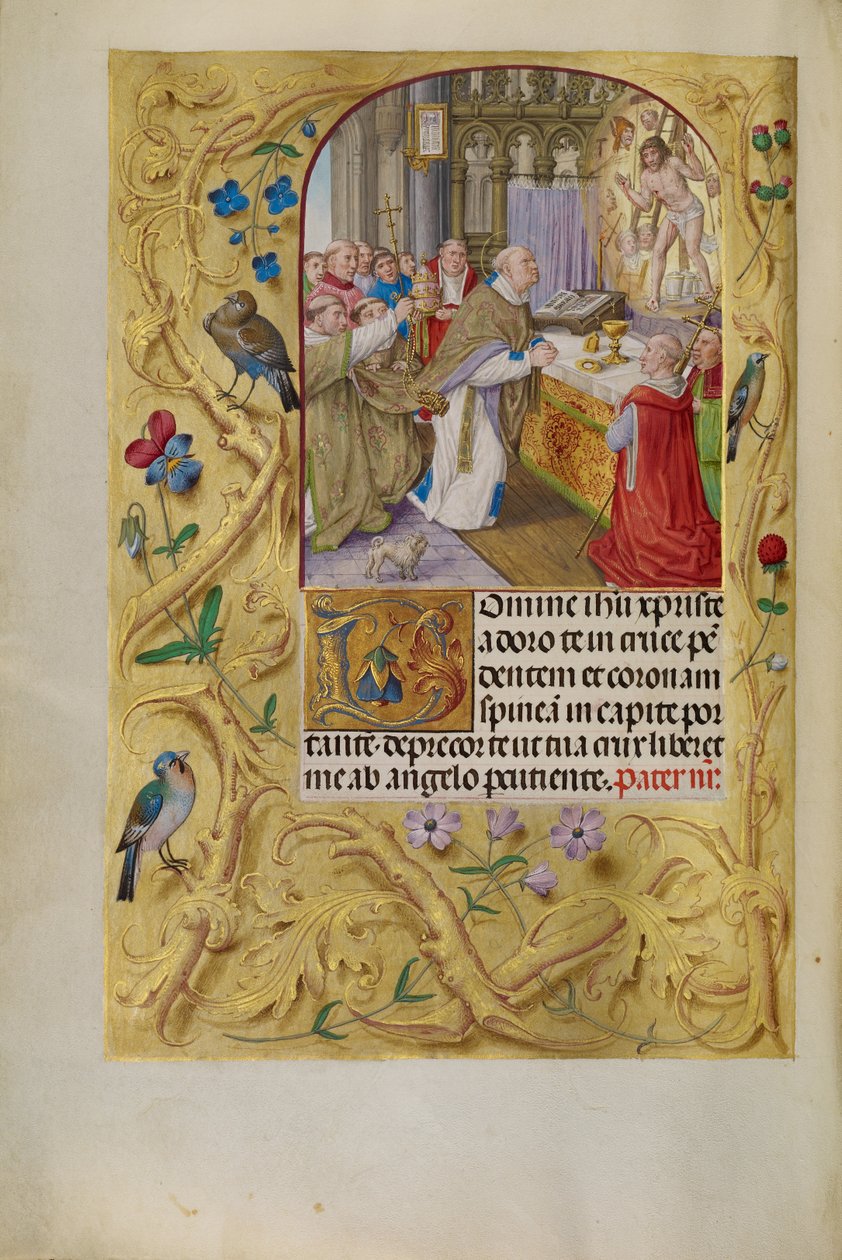 Omine ihu xpriste
adoro te in cruce pē
dentem et coronam
spineā in capite por
tante. deprecor te ut tua crux liberet
me ab angelo peutiente. Pater nr̄: